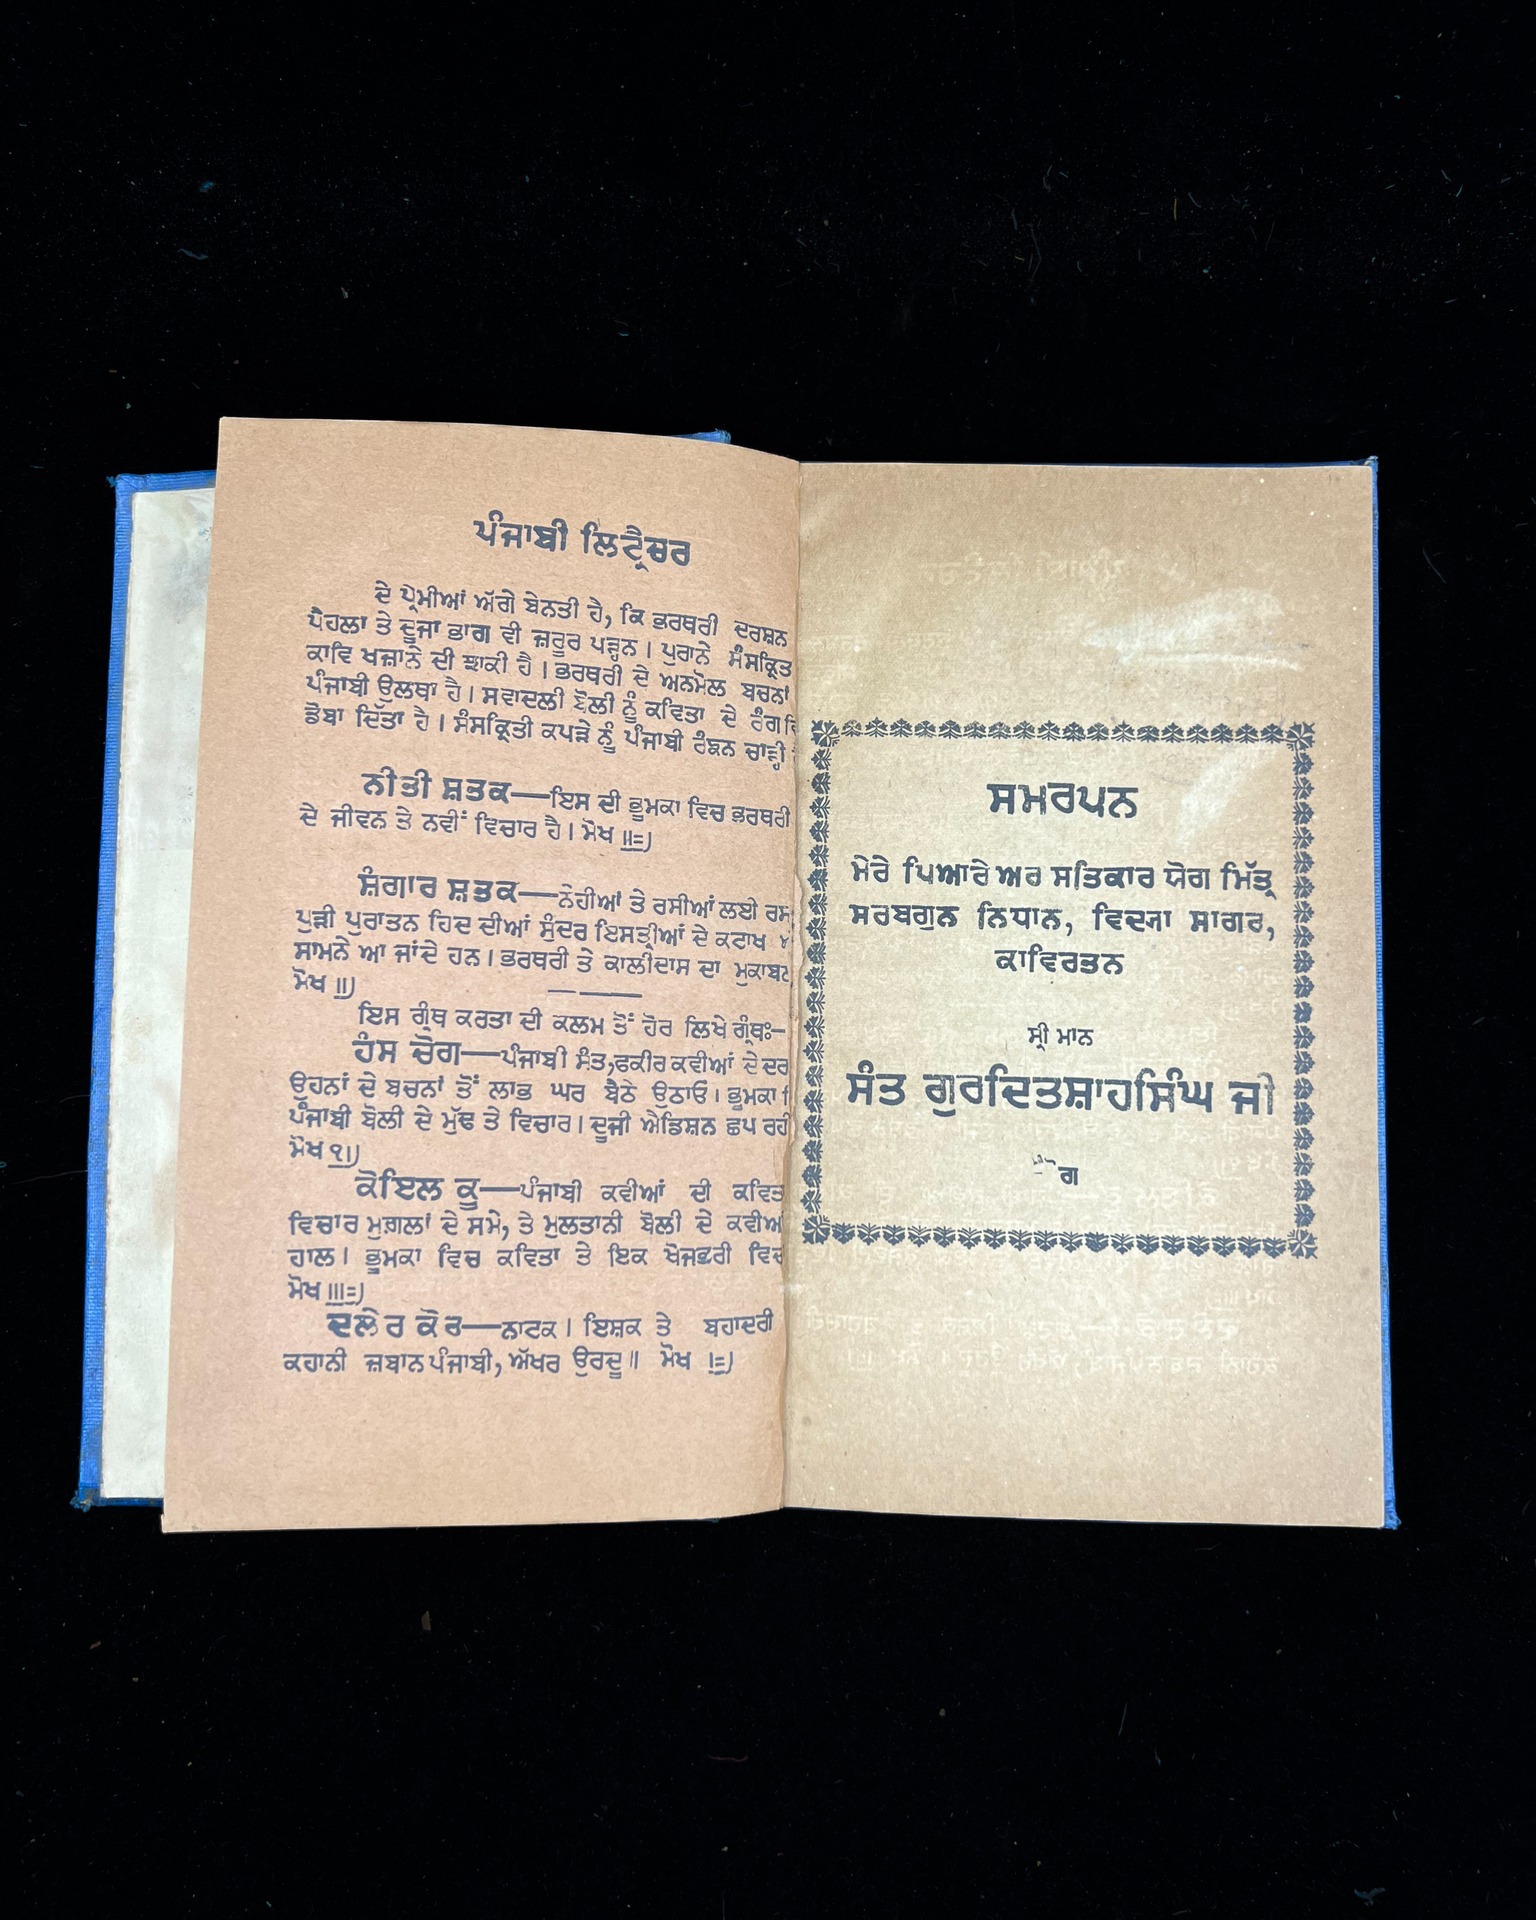 ਪੰਜਾਬੀ ਲਿਟ੍ਰੈਚਰ
ਦੇ ਪ੍ਰੇਮੀਆਂ ਅੱਗੇ ਬੇਨਤੀ ਹੈ, ਕਿ ਭਰਥਰੀ ਦਰਸ਼ਨ
ਪੈਹਲਾ ਤੇ ਦੂਜਾ ਭਾਗ ਵੀ ਜ਼ਰੂਰ ਪੜ੍ਹਨ। ਪੁਰਾਨੇ ਸੰਸਕ੍ਰਿਤ
ਕਾਵਿ ਖਜ਼ਾਨੇ ਦੀ ਝਾਕੀ ਹੈ। ਭਰਥਰੀ ਦੇ ਅਨਮੋਲ ਬਚਨਾਂ
ਪੰਜਾਬੀ ਉਲਥਾ ਹੈ। ਸਵਾਦਲੀ ਬੋਲੀ ਨੂੰ ਕਵਿਤਾ ਦੇ ਰੰਗ
ਡੋਬਾ ਦਿੱਤਾ ਹੈ। ਸੰਸਕ੍ਰਿਤੀ ਕਪੜੇ ਨੂੰ ਪੰਜਾਬੀ ਰੰਙਨ ਚਾੜ੍ਹੀ
ਨੀਤੀ ਸ਼ਤਕ—ਇਸ ਦੀ ਭੂਮਕਾ ਵਿਚ ਭਰਥਰੀ
ਦੇ ਜੀਵਨ ਤੇ ਨਵੀਂ ਵਿਚਾਰ ਹੈ। ਮੋਖ ॥=)
ਸ਼ੰਗਾਰ ਸ਼ਤਕ—ਨੇਹੀਆਂ ਤੇ ਰਸੀਆਂ ਲਈ ਰਸ
ਪੁੜੀ ਪੁਰਾਤਨ ਹਿਦ ਦੀਆਂ ਸੁੰਦਰ ਇਸਤ੍ਰੀਆਂ ਦੇ ਕਟਾਖ
ਸਾਮਨੇ ਆ ਜਾਂਦੇ ਹਨ। ਭਰਥਰੀ ਤੇ ਕਾਲੀਦਾਸ ਦਾ ਮੁਕਾਬਲ
ਮੋਖ ॥)
ਇਸ ਗ੍ਰੰਥ ਕਰਤਾ ਦੀ ਕਲਮ ਤੋਂ ਹੋਰ ਲਿਖੇ ਗ੍ਰੰਥਃ—
ਹੰਸ ਚੋਗ—ਪੰਜਾਬੀ ਸੰਤ,ਫਕੀਰ ਕਵੀਆਂ ਦੇ ਦਰ
ਉਹਨਾਂ ਦੇ ਬਚਨਾਂ ਤੋਂ ਲਾਭ ਘਰ ਬੈਠੇ ਉਠਾਓ। ਭੂਮਕਾ
ਪੰਜਾਬੀ ਬੋਲੀ ਦੇ ਮੁੱਢ ਤੇ ਵਿਚਾਰ। ਦੂਜੀ ਐਡਿਸ਼ਨ ਛਪ ਰਹੀ
ਮੋਖ ੧।)
ਕੋਇਲ ਕੂ—ਪੰਜਾਬੀ ਕਵੀਆਂ ਦੀ ਕਵਿਤ
ਵਿਚਾਰ ਮੁਗ਼ਲਾਂ ਦੇ ਸਮੇ, ਤੇ ਮੁਲਤਾਨੀ ਬੋਲੀ ਦੇ ਕਵੀਆਂ
ਹਾਲ। ਭੂਮਕਾ ਵਿਚ ਕਵਿਤਾ ਤੇ ਇਕ ਖੋਜਭਰੀ ਵਿਚ
ਮੋਖ ॥।=)
ਦਲੇਰ ਕੌਰ—ਨਾਟਕ। ਇਸ਼ਕ ਤੇ ਬਹਾਦਰੀ
ਕਹਾਨੀ ਜ਼ਬਾਨ ਪੰਜਾਬੀ, ਅੱਖਰ ਉਰਦੂ॥ ਮੋਖ ।=)
ਸਮਰਪਨ
ਮੇਰੇ ਪਿਆਰੇ ਅਰ ਸਤਿਕਾਰ ਯੋਗ ਮਿੱਤ੍ਰ
ਸਰਬਗੁਨ ਨਿਧਾਨ, ਵਿਦਯਾ ਸਾਗਰ,
ਕਾਵਿਰਤਨ
ਸ੍ਰੀ ਮਾਨ
ਸੰਤ ਗੁਰਦਿਤਸ਼ਾਹਸਿੰਘ ਜੀ